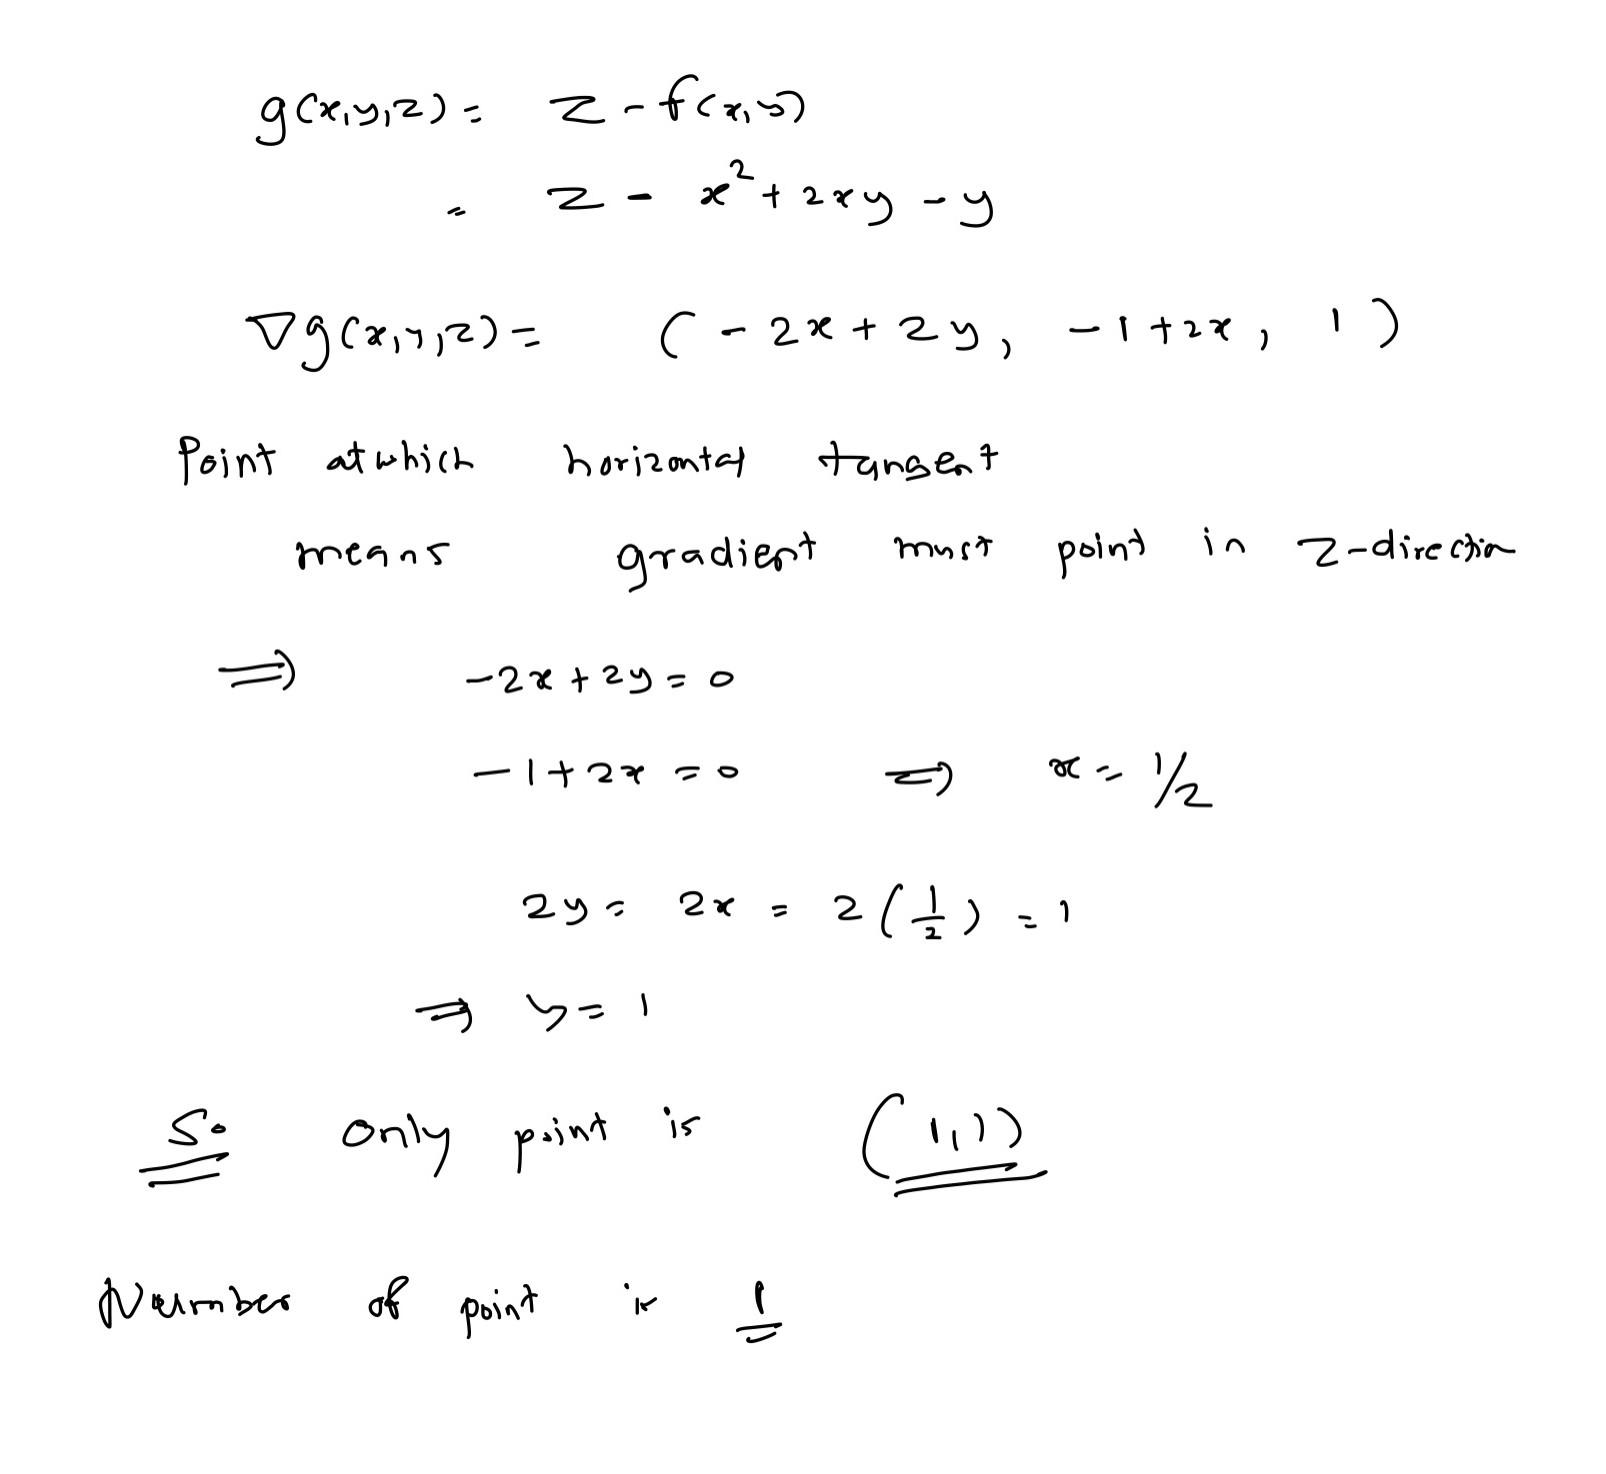 g(x,y,z) = z - f(x,y)
= z - x² + 2xy - y
∇g(x,y,z) = (-2x + 2y, -1 + 2x, 1)
Point at which horizontal tangent
means gradient must point in z-direction
⇒ -2x + 2y = 0
-1 + 2x = 0 ⇒ x = 1/2
2y = 2x = 2(1/2) = 1
⇒ y = 1
So only point is (1,1)
Number of point is 1